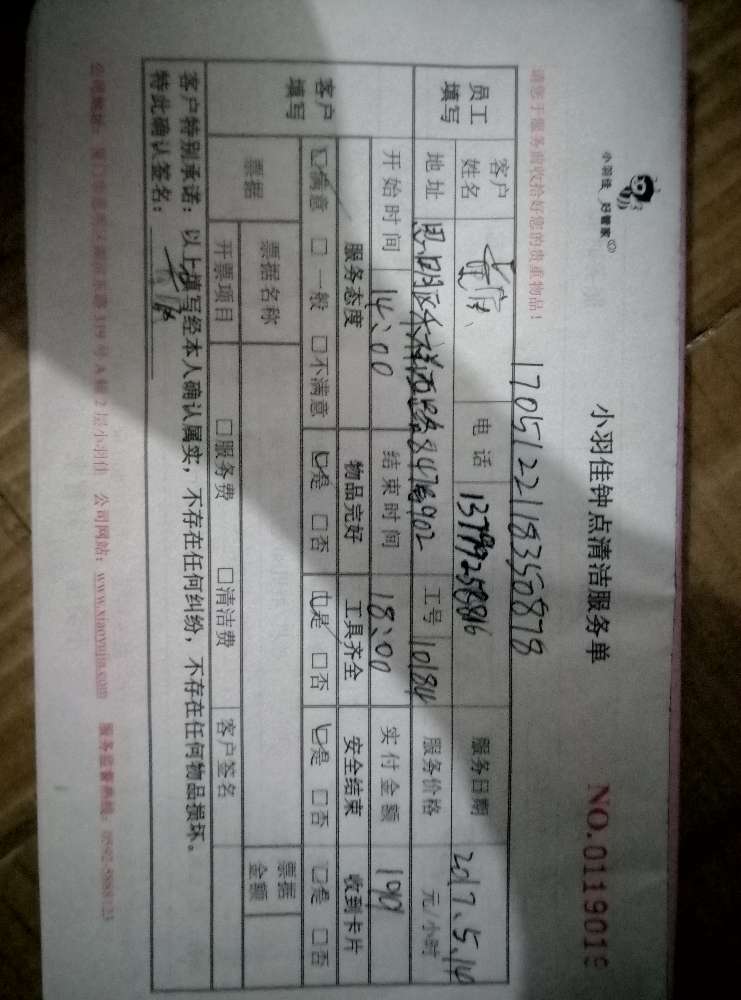 小羽佳 好管家
小羽佳钟点清洁服务单
NO.0119019
请您于服务前收拾好您的贵重物品！
1705122118350878
员工填写
客户姓名 电话 13799258816 服务日期 2017.5.14
地址 思明区 西路84号902 工号 10184 服务价格 元/小时
开始时间 14:00 结束时间 18:00 实付金额
客户填写
服务态度 物品完好 工具齐全 安全结束 收到卡片
☑满意 □一般 □不满意 ☑是 □否 ☑是 □否 ☑是 □否 □是 □否
票据 票据名称 票据金额
开票项目 □服务费 □清洁费 客户签名
客户特别承诺：以上填写经本人确认属实，不存在任何纠纷，不存在任何物品损坏。
特此确认签名：
公司网站：www.xiaoyujia.com 服务监督热线：